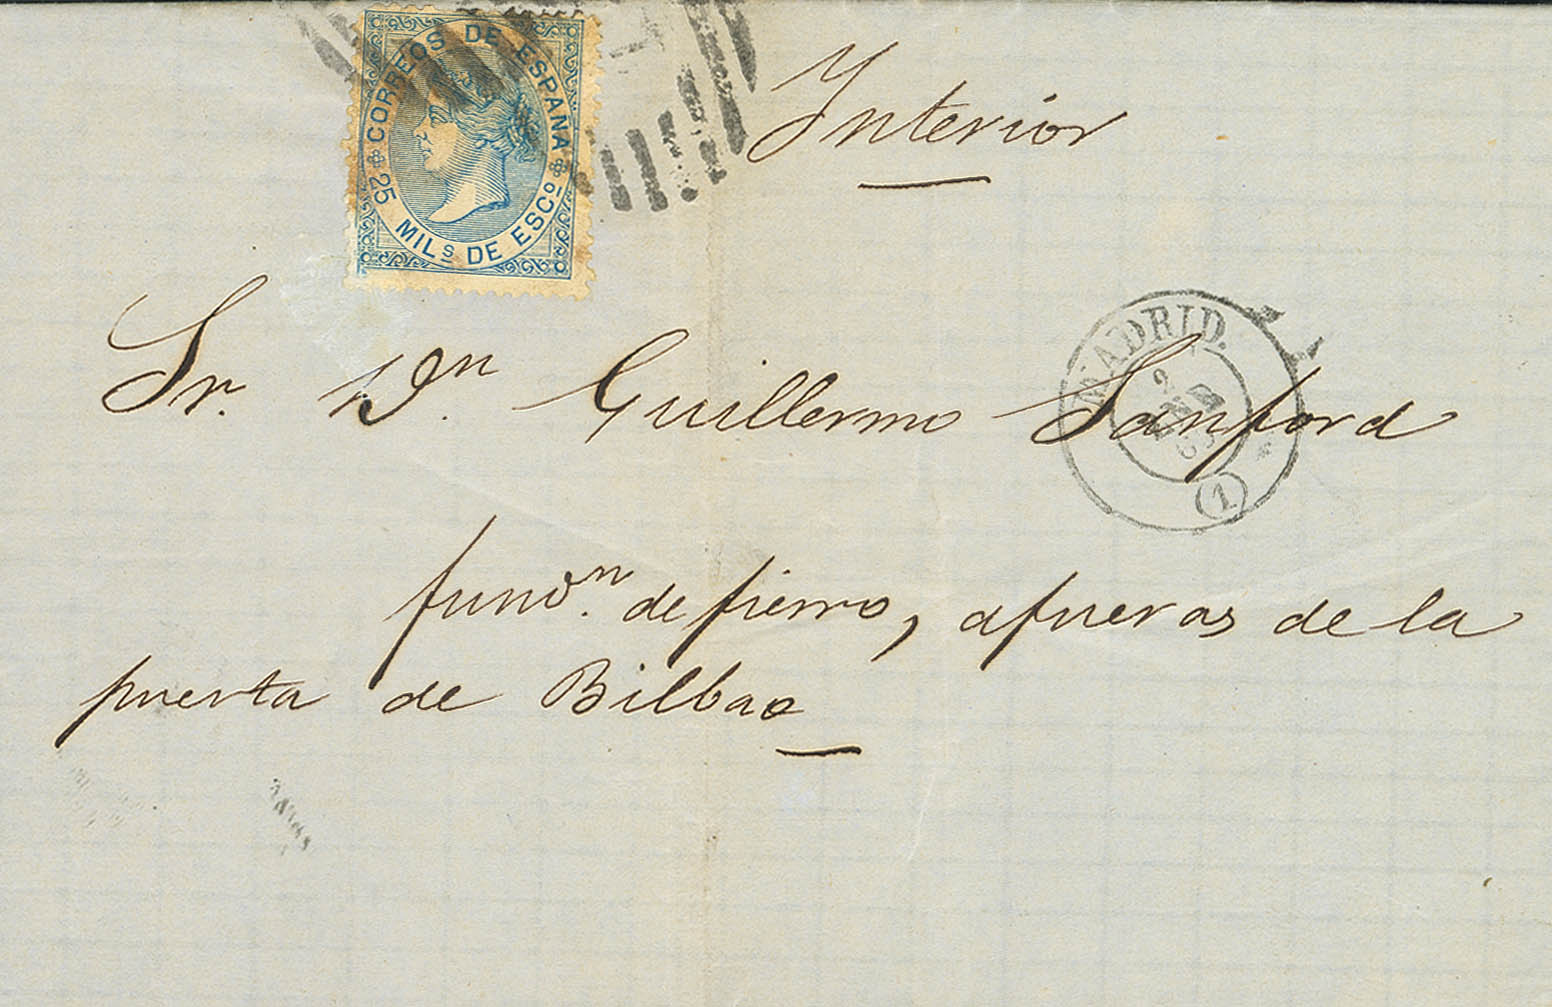 CORREOS DE ESPAÑA
25 MILS DE ESCO
Interior
Sr. Dn. Guillermo Sanford
MADRID.
2
ENE
(1)
fundn. de fierro, afueras de la
puerta de Bilbao